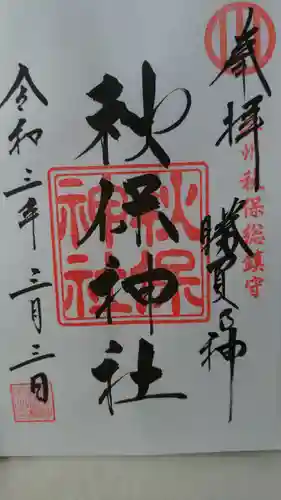 奉拝
勝負の神
州秋保総鎮守
秋保神社
秋保
神社
令和三年三月三日